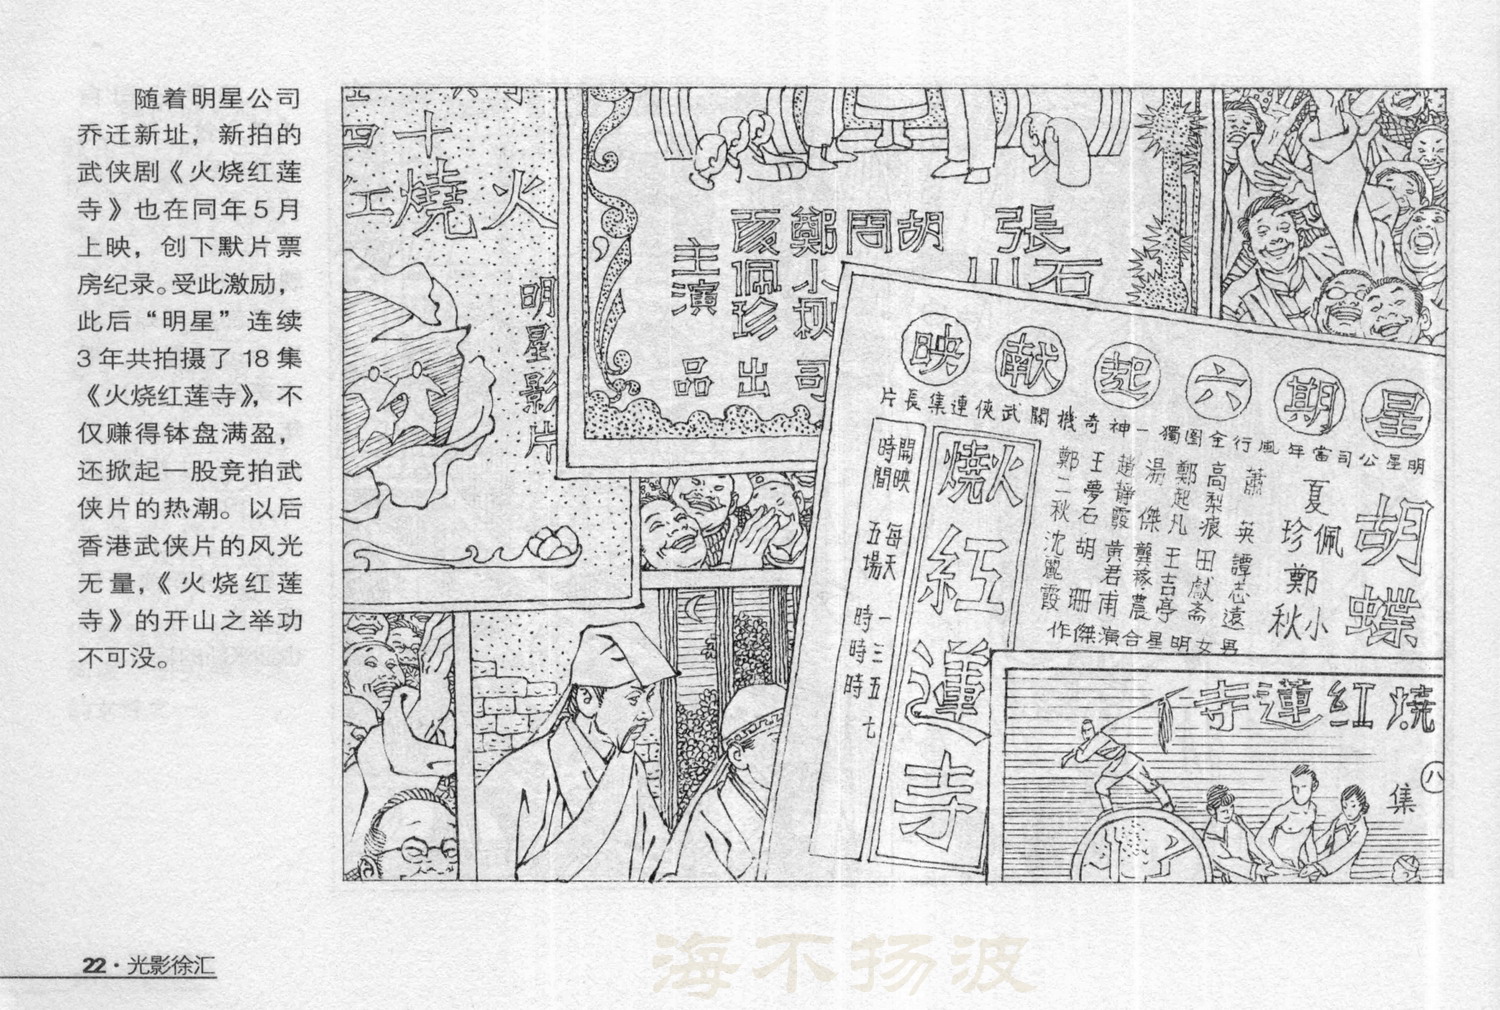 随着明星公司
乔迁新址，新拍的
武侠剧《火烧红莲
寺》也在同年5月
上映，创下默片票
房纪录。受此激励，
此后“明星”连续
3年共拍摄了18集
《火烧红莲寺》，不
仅赚得钵盘满盈，
还掀起一股竞拍武
侠片的热潮。以后
香港武侠片的风光
无量，《火烧红莲
寺》的开山之举功
不可没。
十四
火燒红
明星影片
張石川
胡
周
鄭小秋
佩珍
主演
司出品
星期六起献映
明星公司當年風行全國獨一神奇機關武俠連集長片
胡蝶
夏佩珍
鄭小秋
蕭英
譚志遠
高梨痕
田獻斋
鄭起凡
王吉亭
湯傑
龔稼農
趙靜霞
黄君甫
王夢石
胡珊
鄭二秋
沈麗霞
男女明星合演傑作
火燒
紅蓮寺
開映時間
每天五場
一時
三時
五時
七
燒紅蓮寺
八集
22·光影徐汇
海不扬波